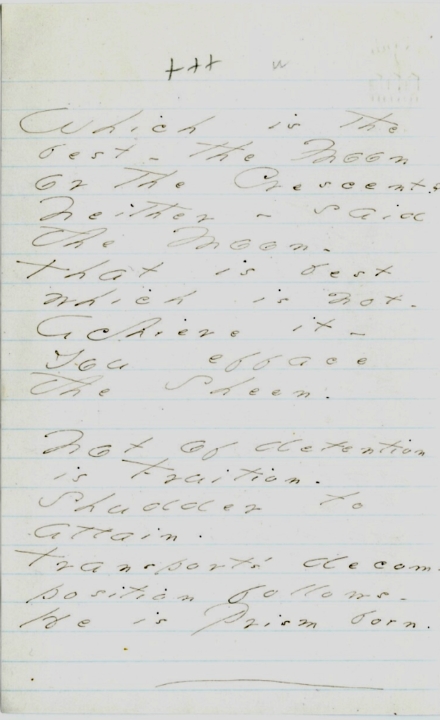 +++ w
Which is the
best - the Moon
or the Crescent?
Neither - said
the Moon -
That is best
which is not -
Achieve it -
You efface
the Sheen.
Not of detention
is Fruition -
Shudder to
attain.
Transport's decom-
position follows -
He is Prism born.